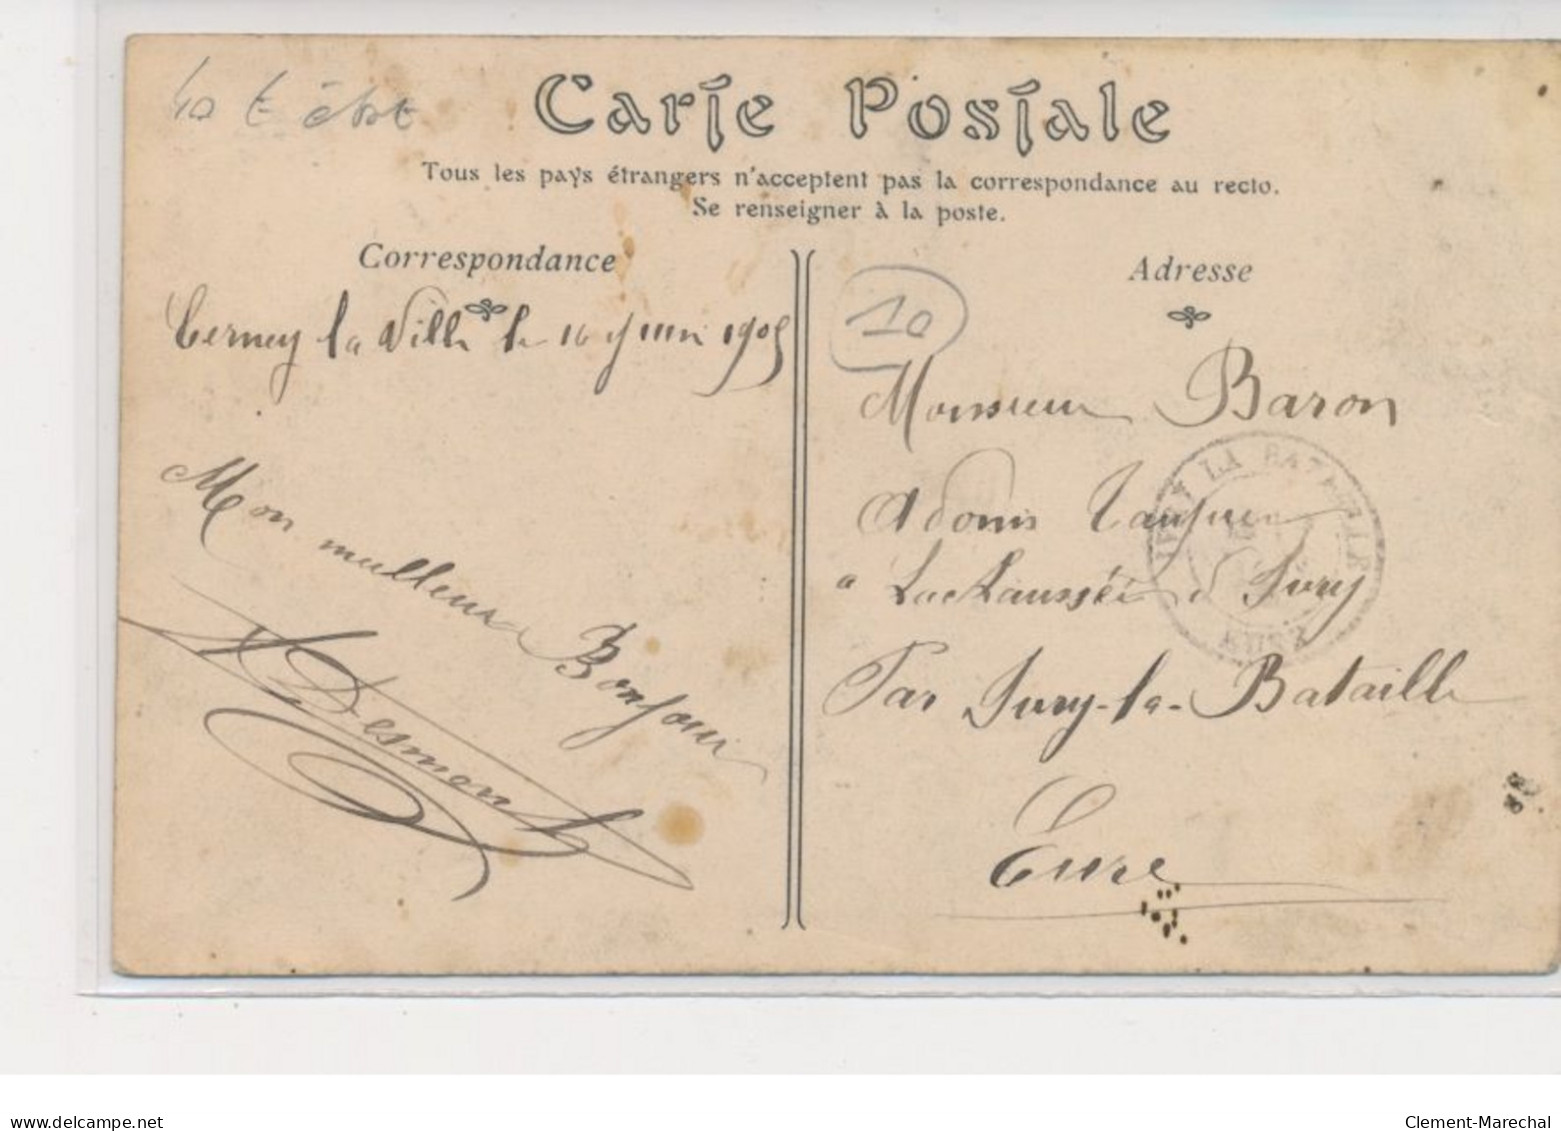 10 t
Carte Postale
Tous les pays étrangers n'acceptent pas la correspondance au recto.
Se renseigner à la poste.
Correspondance
Cerney la Ville le 16 Juin 1905
Mon meilleur Bonjour
Desmont
Adresse
10
Monsieur Baron
Adonis
a LaChaussée d'Ivry
Par Ivry-la-Bataille
Eure
IVRY LA BATAILLE
EURE
www.delcampe.net
Clement-Marechal